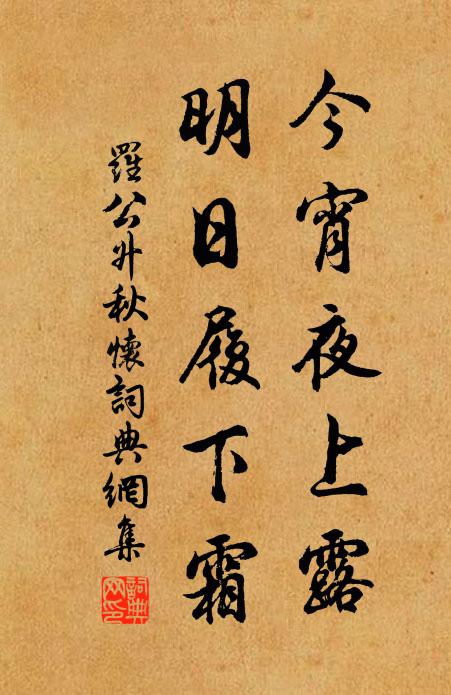 今宵夜上露
明日履下霜
羅公升秋懷詞典網集
詞典网印